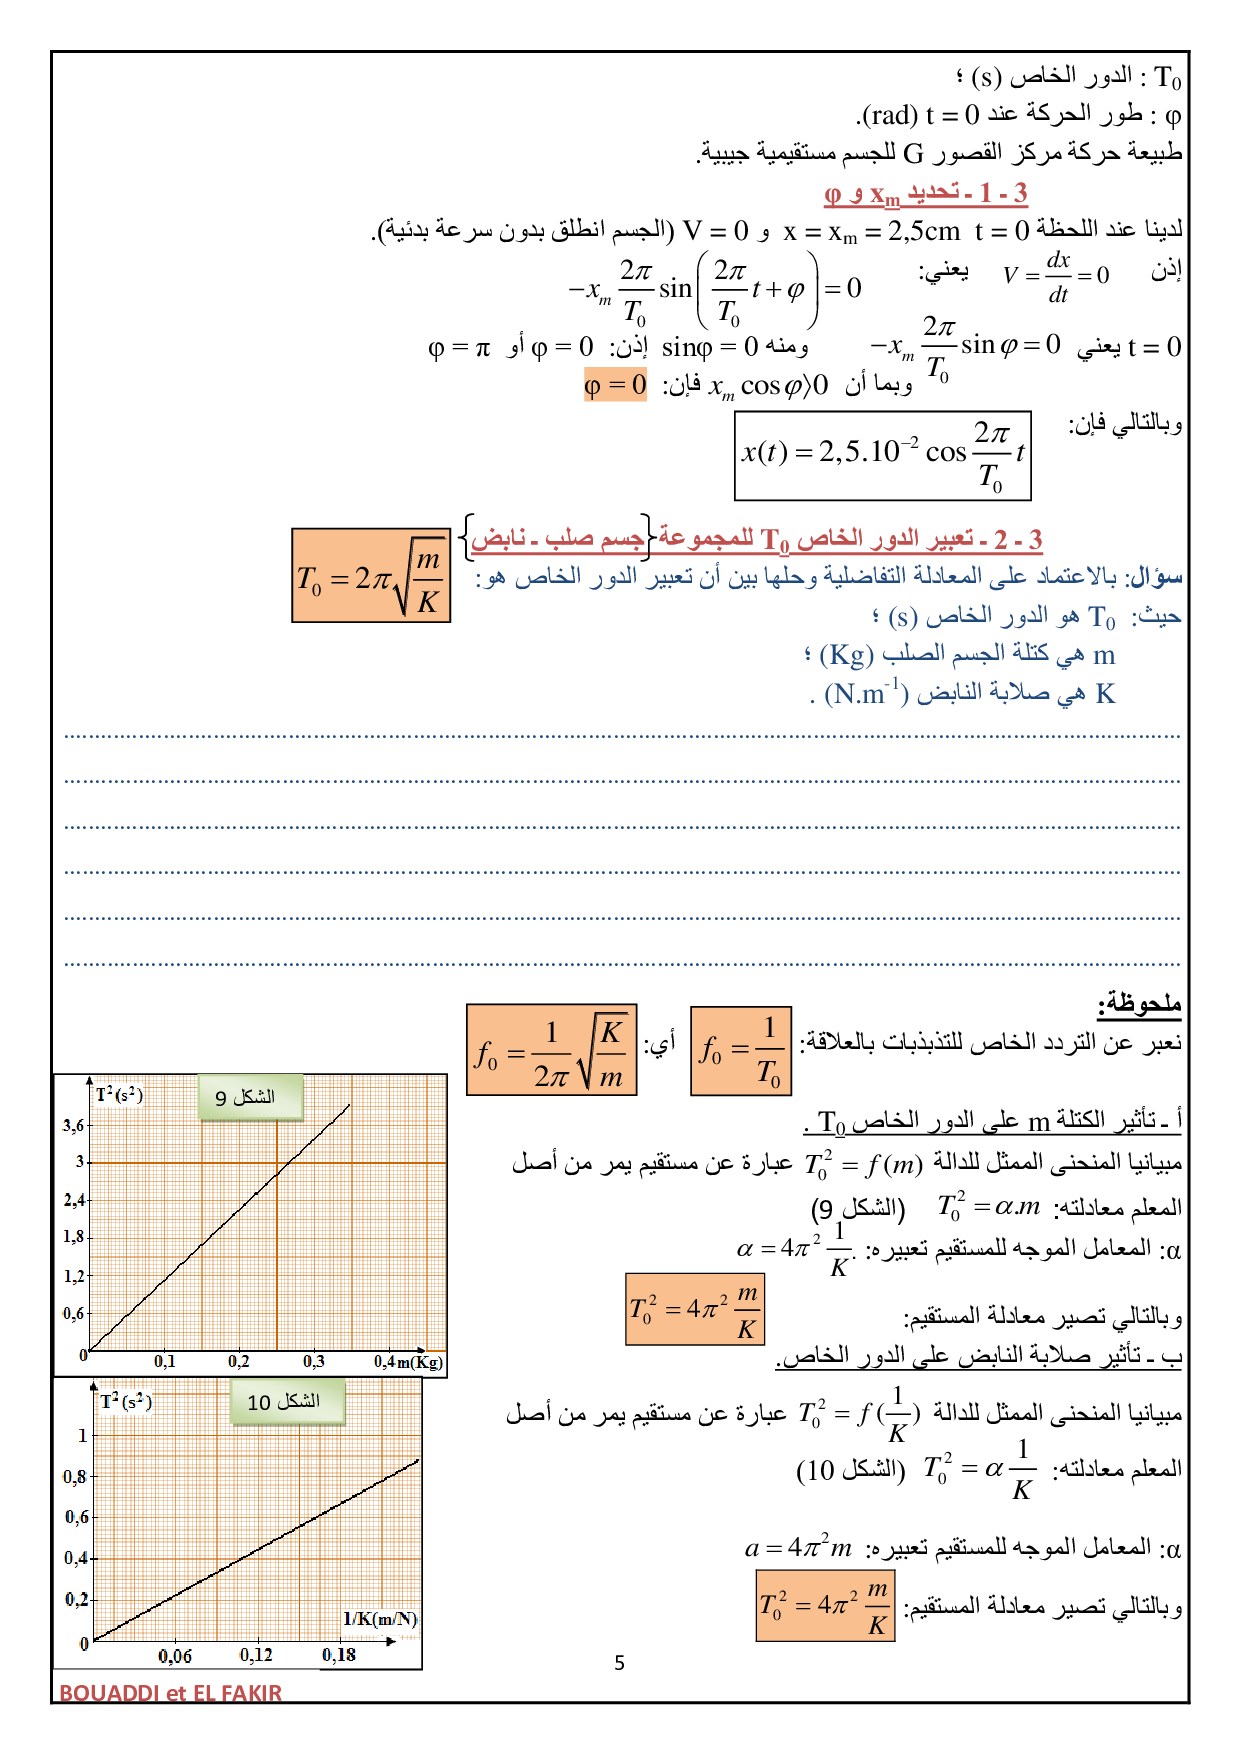 T₀ : الدور الخاص (s) ؛
φ : طور الحركة عند t = 0 (rad).
طبيعة حركة مركز القصور G للجسم مستقيمية جيبية.
3 - 1 - تحديد xₘ و φ
لدينا عند اللحظة t = 0 x = xₘ = 2,5cm و V = 0 (الجسم انطلق بدون سرعة بدئية).
إذن V = dx/dt = 0 يعني: −xₘ 2π/T₀ sin(2π/T₀ t + φ) = 0
t = 0 يعني −xₘ 2π/T₀ sin φ = 0 ومنه sinφ = 0 إذن: φ = 0 أو φ = π
وبما أن xₘ cos φ⟩0 فإن: φ = 0
وبالتالي فإن: x(t) = 2,5.10⁻² cos 2π/T₀ t
3 - 2 - تعبير الدور الخاص T₀ للمجموعة {جسم صلب - نابض}
سؤال: بالاعتماد على المعادلة التفاضلية وحلها بين أن تعبير الدور الخاص هو: T₀ = 2π√(m/K)
حيث: T₀ هو الدور الخاص (s) ؛
m هي كتلة الجسم الصلب (Kg) ؛
K هي صلابة النابض (N.m⁻¹) .
ملحوظة:
نعبر عن التردد الخاص للتذبذبات بالعلاقة: f₀ = 1/T₀ أي: f₀ = 1/2π √(K/m)
أ - تأثير الكتلة m على الدور الخاص T₀ .
مبيانيا المنحنى الممثل للدالة T₀² = f(m) عبارة عن مستقيم يمر من أصل
المعلم معادلته: T₀² = α.m (الشكل 9)
α: المعامل الموجه للمستقيم تعبيره: α = 4π² 1/K .
وبالتالي تصير معادلة المستقيم: T₀² = 4π² m/K
ب - تأثير صلابة النابض على الدور الخاص.
مبيانيا المنحنى الممثل للدالة T₀² = f(1/K) عبارة عن مستقيم يمر من أصل
المعلم معادلته: T₀² = α 1/K (الشكل 10)
α: المعامل الموجه للمستقيم تعبيره: a = 4π²m
وبالتالي تصير معادلة المستقيم: T₀² = 4π² m/K
T²(s²)
الشكل 9
3,6
3
2,4
1,8
1,2
0,6
0
0,1 0,2 0,3 0,4 m(Kg)
T²(s²)
الشكل 10
1
0,8
0,6
0,4
0,2
1/K(m/N)
0
0,06 0,12 0,18
5
BOUADDI et EL FAKIR